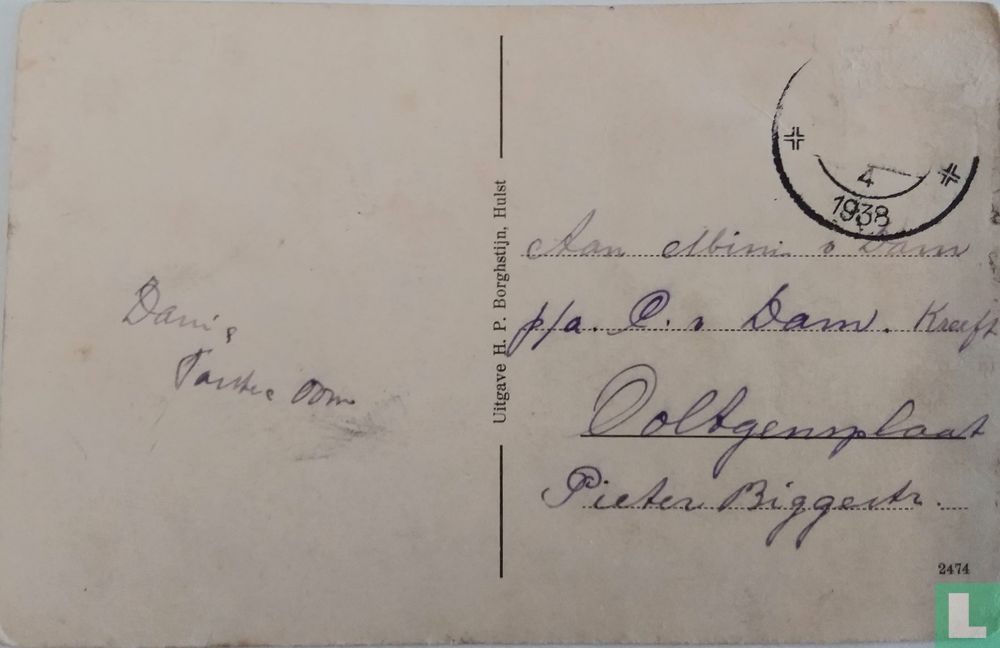 4
1938
Aan v Dam
p/a. C. v Dam. Kreeft
Ooltgensplaat
Pieter Biggestr.
Tante Oom
Uitgave H. P. Borghstijn, Hulst
2474
L